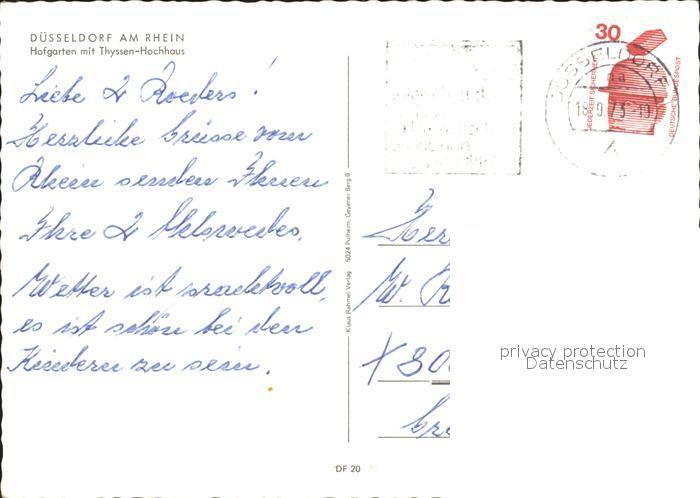 DÜSSELDORF AM RHEIN
Hofgarten mit Thyssen-Hochhaus
Liebe 2 Roeders!
Herzliche Grüsse vom
Rhein senden Ihnen
Ihre 2
Wetter ist prachtvoll,
es ist schön bei den
Kindern zu sein.
Klaus Rahmel Verlag 5024 Pulheim, Geyener Berg 9
DF 20
30
JEDERZEIT SICHERHEIT
DEUTSCHE BUNDESPOST
DÜSSELDORF
18.9.73-19
Her
W. R
X 80
Gr
privacy protection
Datenschutz